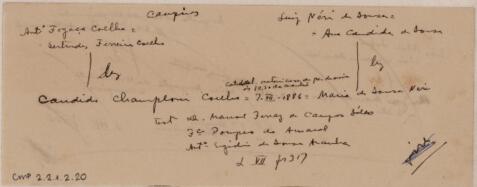 Campinas
Antº Fogaça Coelho =
Gertrudes Ferreira Coelho
Luiz Néri de Souza =
= Ana Candida de Souza
Candido Coelho = 7.XII.1886 = Maria de Souza Neri
test Dr. Manoel Ferraz de Campos Sales
Fco Pompeu do Amaral
Antº Egidio de Souza Aranha
L XII fs 37
CMP 2.2.1.2.20